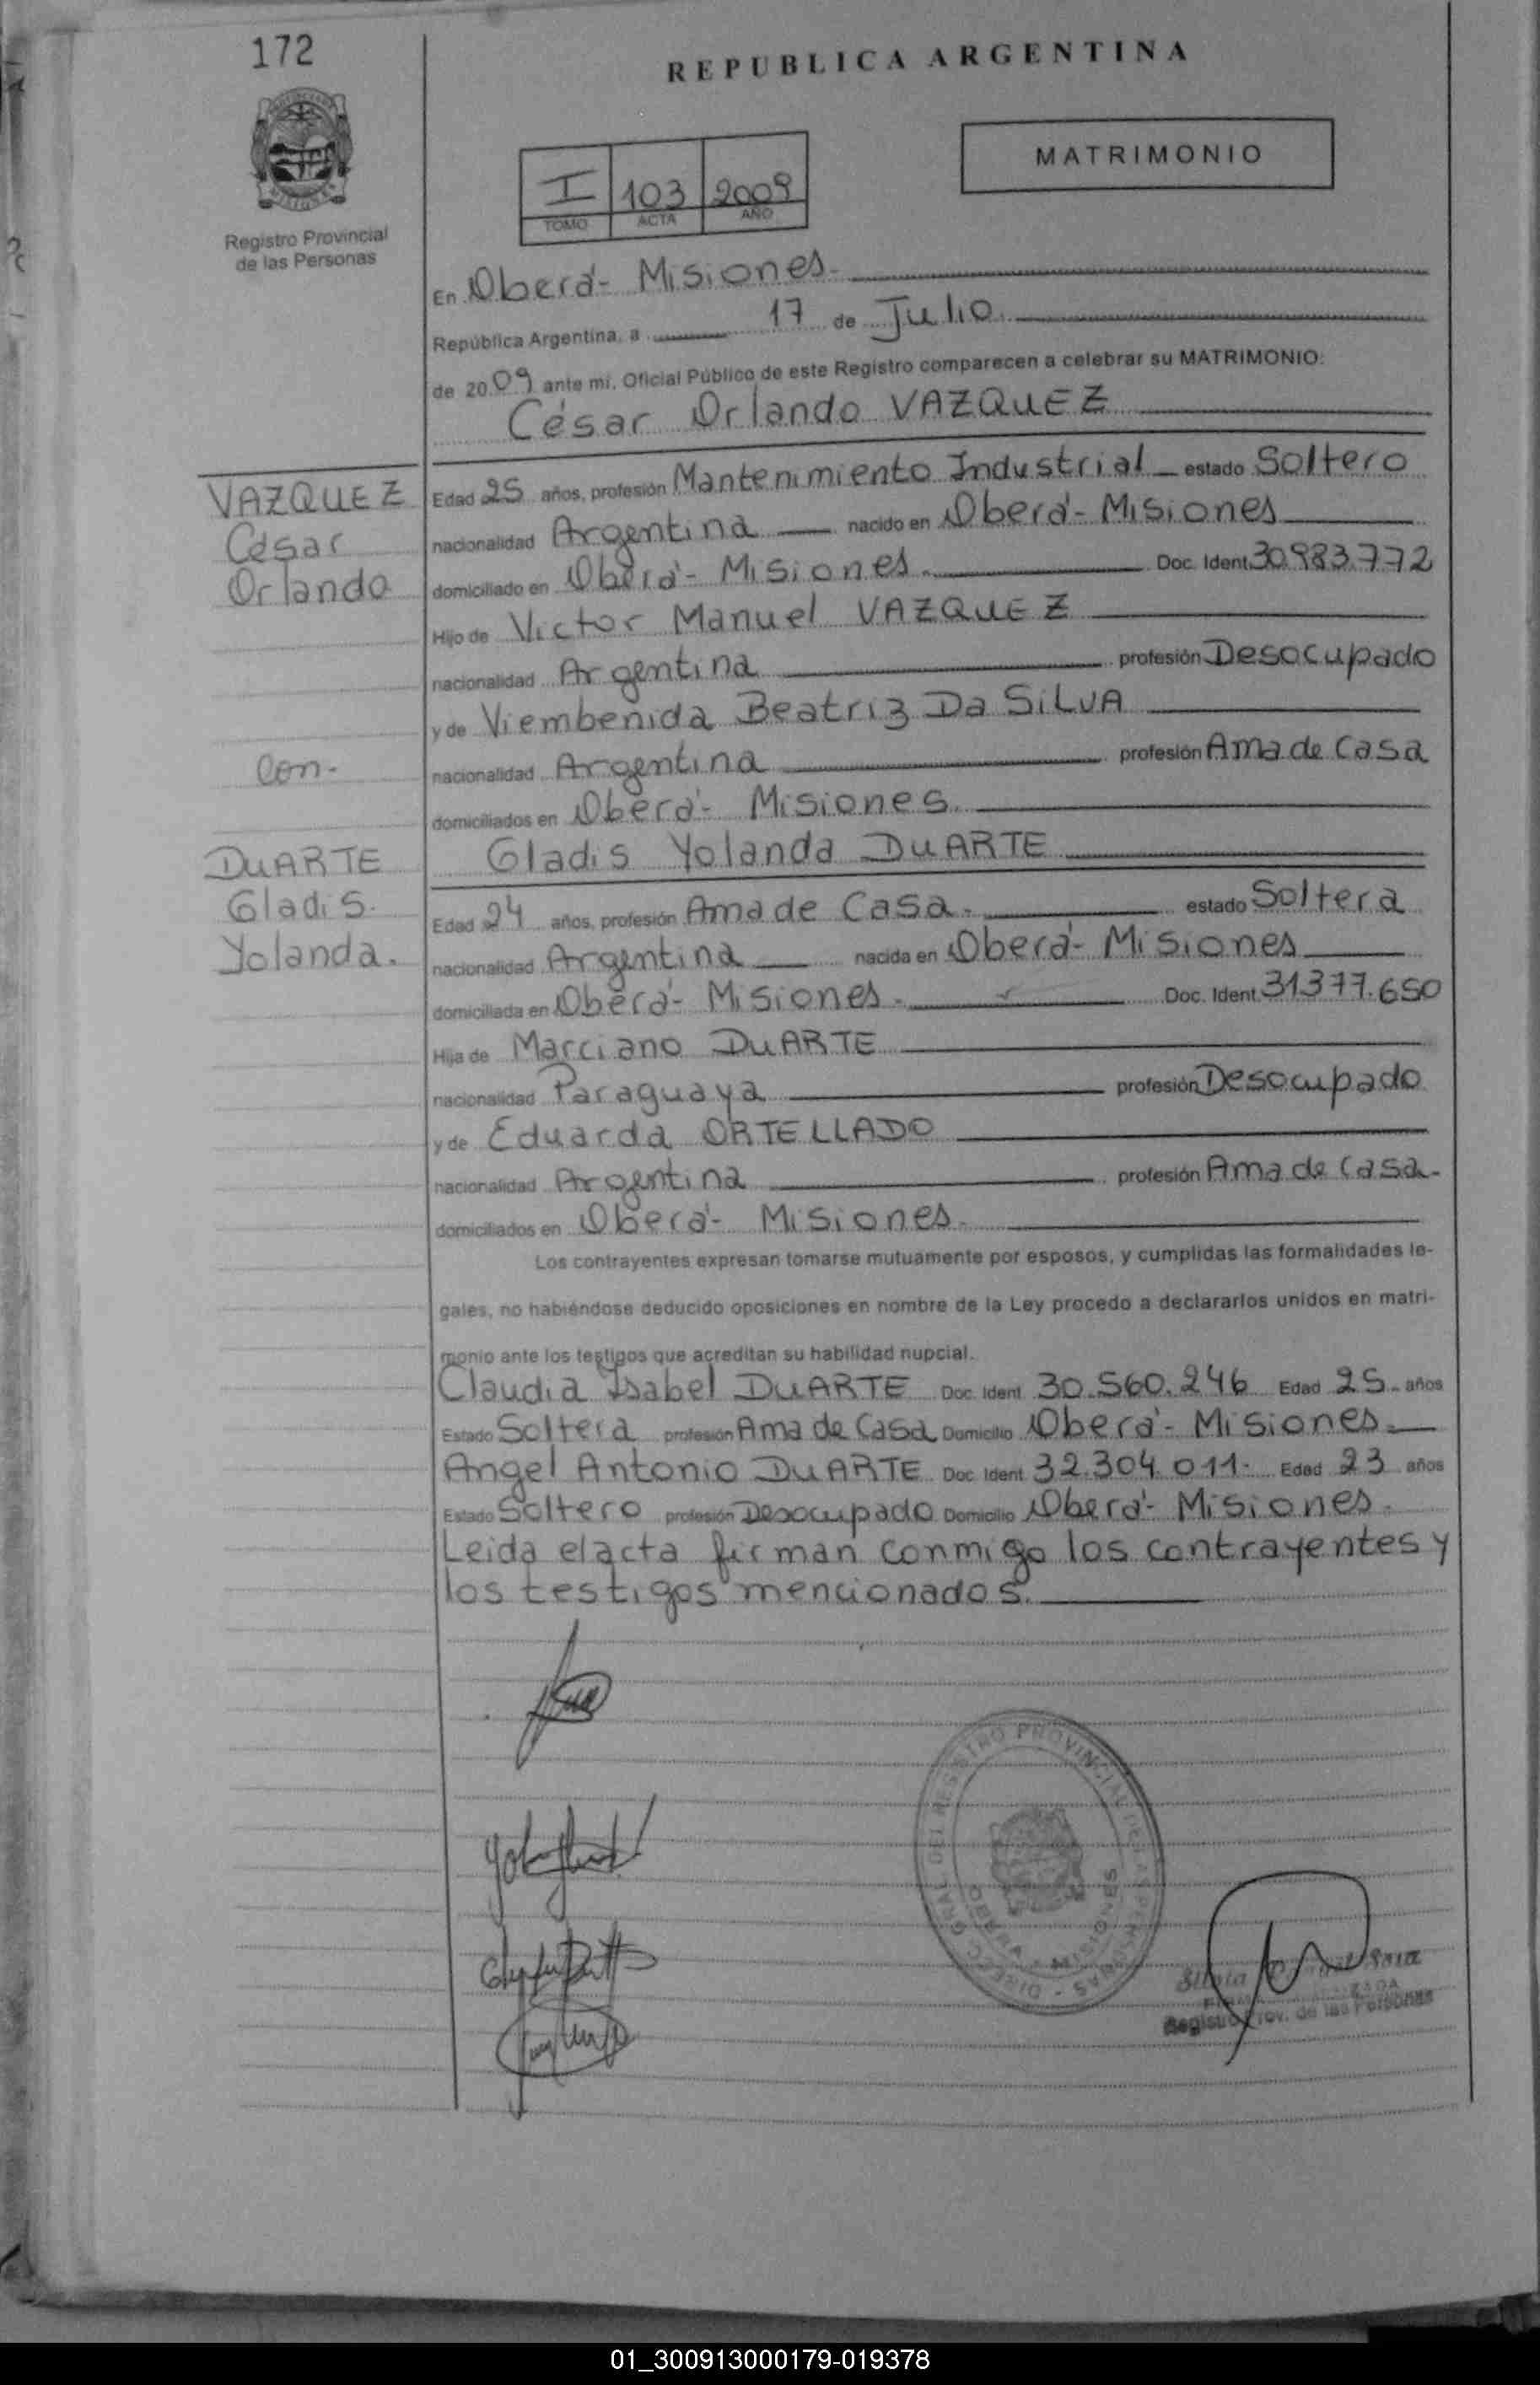 172
REPUBLICA ARGENTINA
MATRIMONIO
I 103 2009
TOMO ACTA AÑO
Registro Provincial
de las Personas
En Oberá- Misiones.
República Argentina, a 17 de Julio.
de 2009 ante mi, Oficial Público de este Registro comparecen a celebrar su MATRIMONIO:
César Orlando VAZQUEZ
VAZQUEZ
César
Orlando
Con-
DUARTE
Gladis.
Yolanda.
Edad 25 años, profesión Mantenimiento Industrial estado Soltero
nacionalidad Argentina nacido en Oberá- Misiones
domiciliado en Oberá- Misiones. Doc. Ident. 30.983.772
Hijo de Victor Manuel VAZQUEZ
nacionalidad Argentina profesión Desocupado
y de Viembenida Beatriz Da SiLVA
nacionalidad Argentina profesión Ama de Casa
domiciliados en Oberá- Misiones.
Gladis Yolanda DUARTE
Edad 24 años, profesión Ama de Casa. estado Soltera
nacionalidad Argentina nacida en Oberá- Misiones
domiciliada en Oberá- Misiones. Doc. Ident. 31.377.650
Hija de Marciano DUARTE
nacionalidad Paraguaya profesión Desocupado
y de Eduarda ORTELLADO
nacionalidad Argentina profesión Ama de Casa.
domiciliados en Oberá- Misiones.
Los contrayentes expresan tomarse mutuamente por esposos, y cumplidas las formalidades le-
gales, no habiéndose deducido oposiciones en nombre de la Ley procedo a declararlos unidos en matri-
monio ante los testigos que acreditan su habilidad nupcial.
Claudia Isabel DUARTE Doc. Ident. 30.560.246 Edad 25. años
Estado Soltera profesión Ama de Casa Domicilio Oberá- Misiones.
Angel Antonio DUARTE Doc. Ident. 32.304.011. Edad 23 años
Estado Soltero profesión Desocupado Domicilio Oberá- Misiones.
Leida el acta firman conmigo los contrayentes y
los testigos mencionados.
Registro Prov. de las Personas
01_300913000179-019378